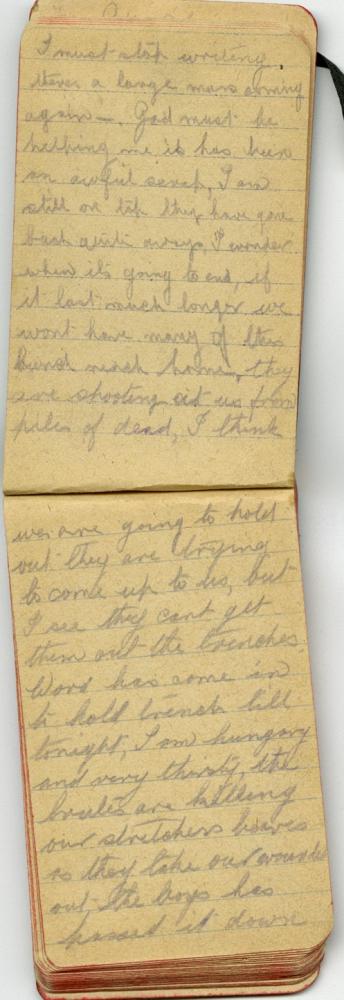 I must stop writing.
theres a large mass coming
again —. God must be
helping me it has been
an awful scrap, I am
still on top they have gone
back quite aways, I wonder
when its going to end, if
it last much longer we
wont have many of this
bunch reach home, they
are shooting at us from
piles of dead, I think
we are going to hold
out they are trying
to come up to us, but
I see they cant get
them out the trenches.
Word has come in
to hold trench till
tonight, I am hungary
and very thirsty, the
brutes are killing
our stretchers beares
as they take our wounded
out the boys has
passed it down